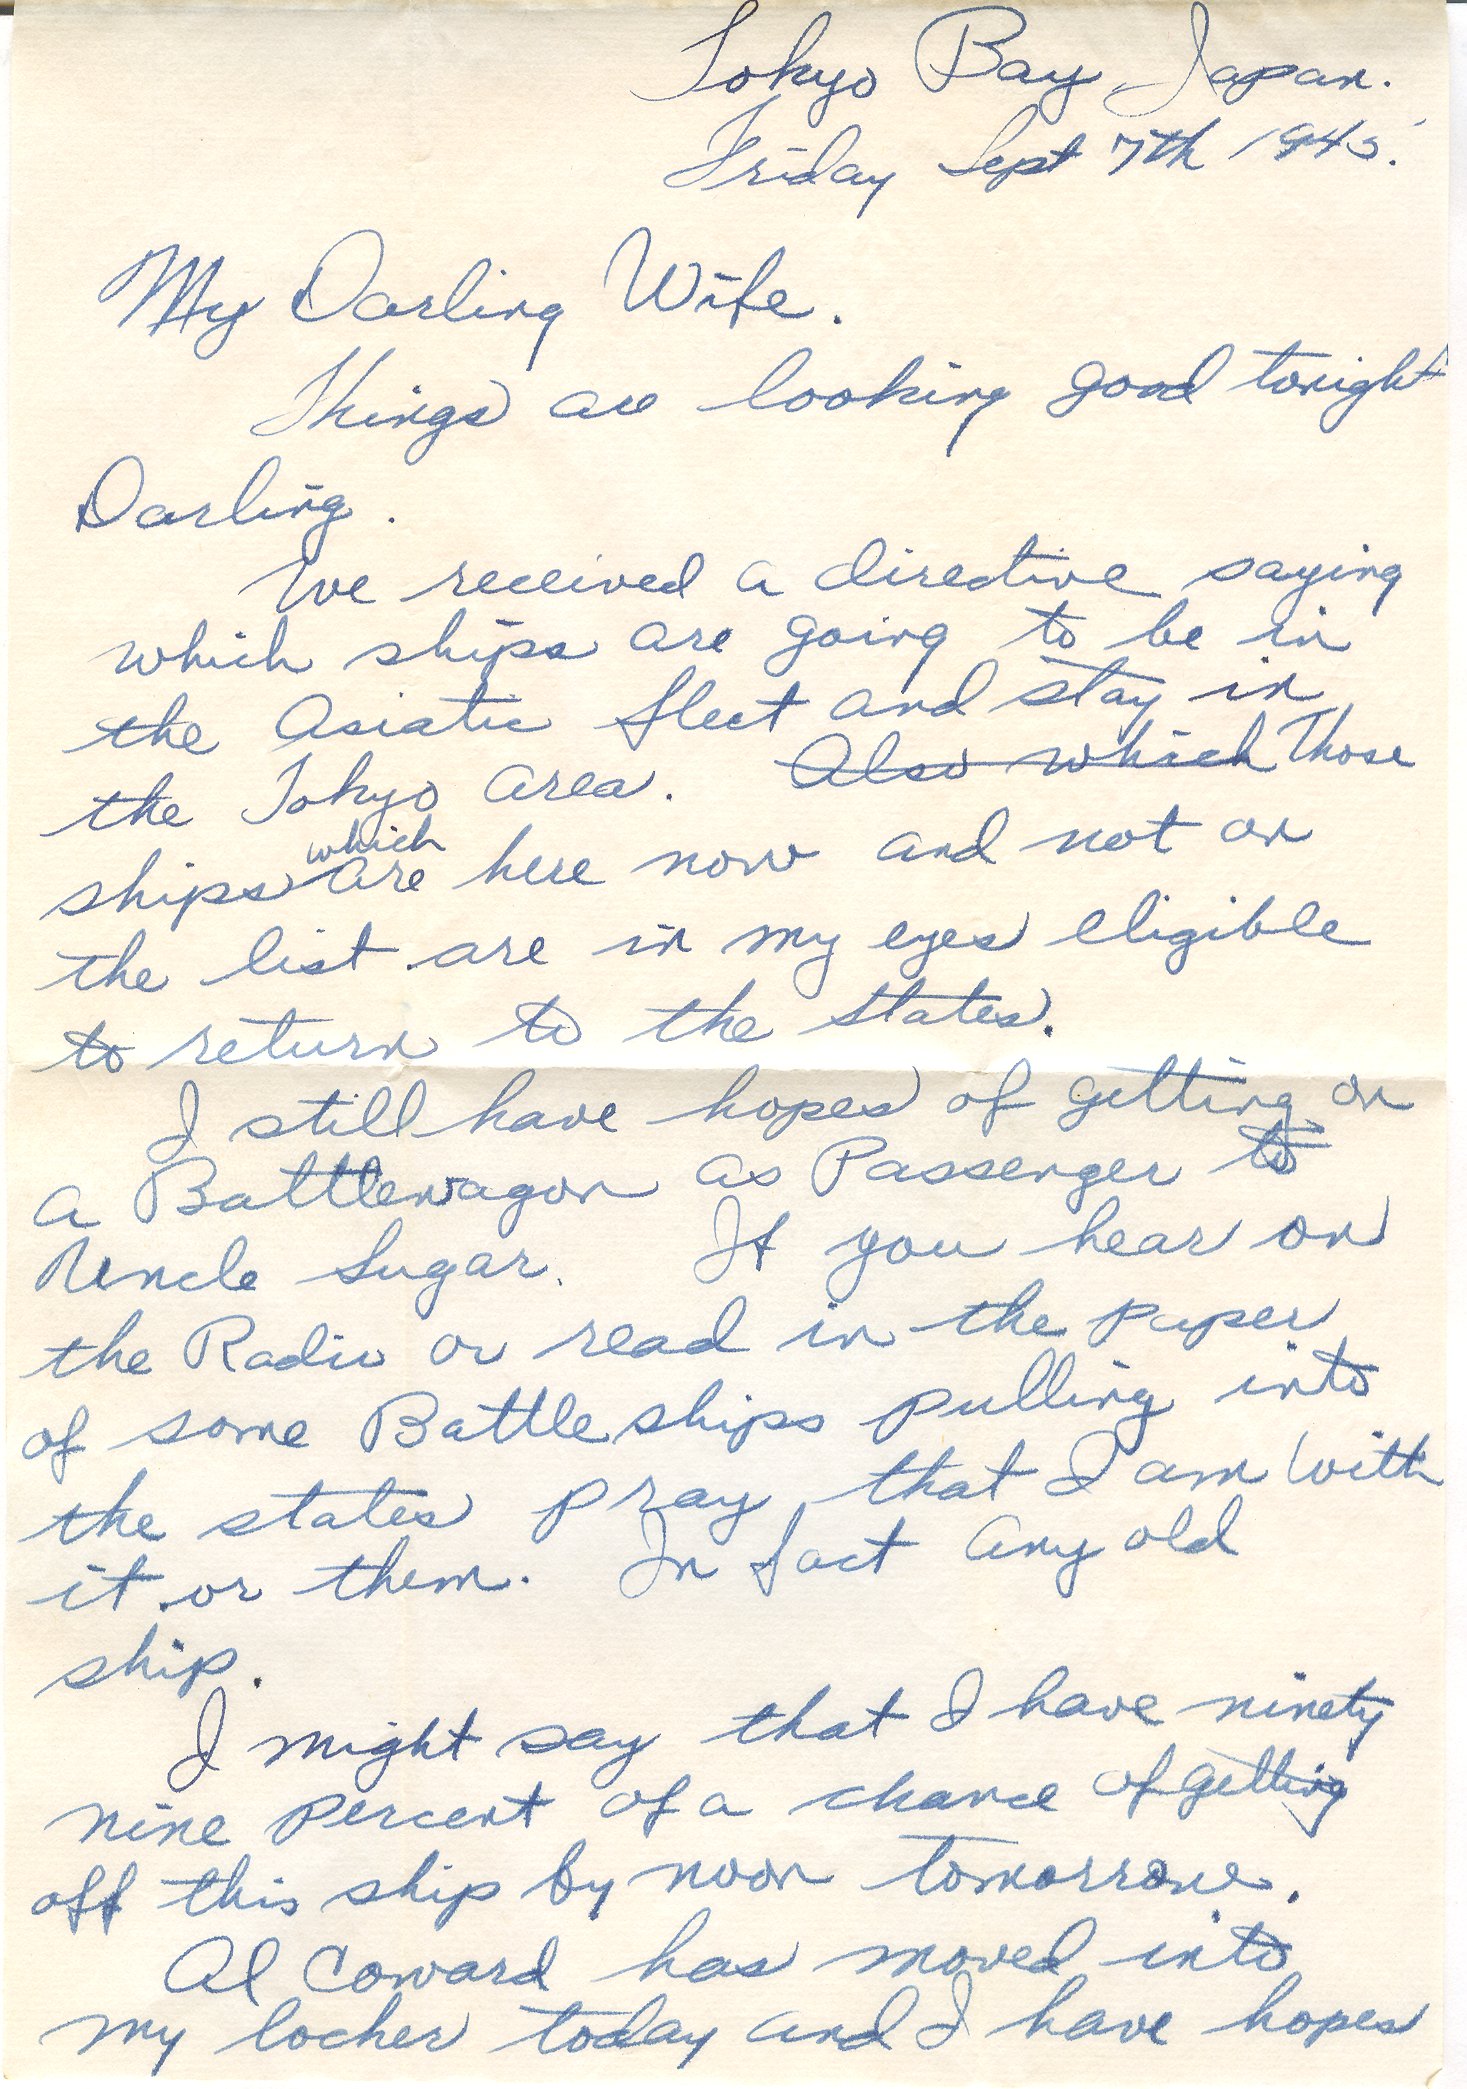 Tokyo Bay, Japan.
Friday Sept 7th 1945.
My Darling Wife.
Things are looking good tonight
Darling.
We received a directive saying
which ships are going to be in
the Asiatic fleet and stay in
the Tokyo area. Also which Those
which
ships are here now and not on
the list are in my eyes eligible
to return to the states.
I still have hopes of getting on
a Battlewagon as Passenger to
Uncle Sugar. If you hear on
the Radio or read in the paper
of some Battleships pulling into
the states pray that I am with
it or them. In fact any old
ship.
I might say that I have ninety
nine percent of a chance of getting
off this ship by noon tomorrow.
Al Coward has moved into
my locker today and I have hopes